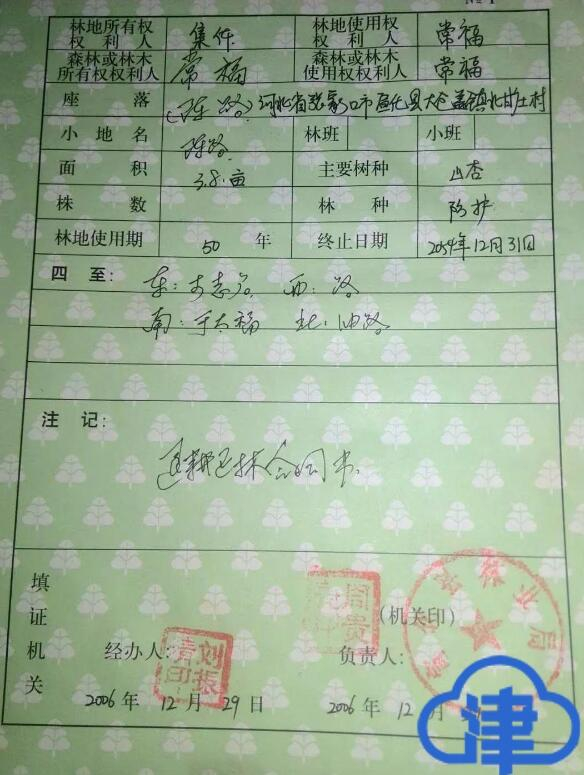 № 1
林地所有权权利人 集体 林地使用权权利人 常福
森林或林木所有权权利人 常福 森林或林木使用权权利人 常福
座落 河北省张家口市宣化县大仓盖镇北甘庄村
小地名 林班 小班
面积 3.8亩 主要树种 山杏
株数 林种 防护
林地使用期 50 年 终止日期 2054年12月31日
四至: 东: 西:路
南:于大福 北:油路
注记:
退耕还林合同书
填证机关
(机关印)
经办人: 刘振清印 负责人:
2006 年 12 月 29 日 2006 年 12 月
津